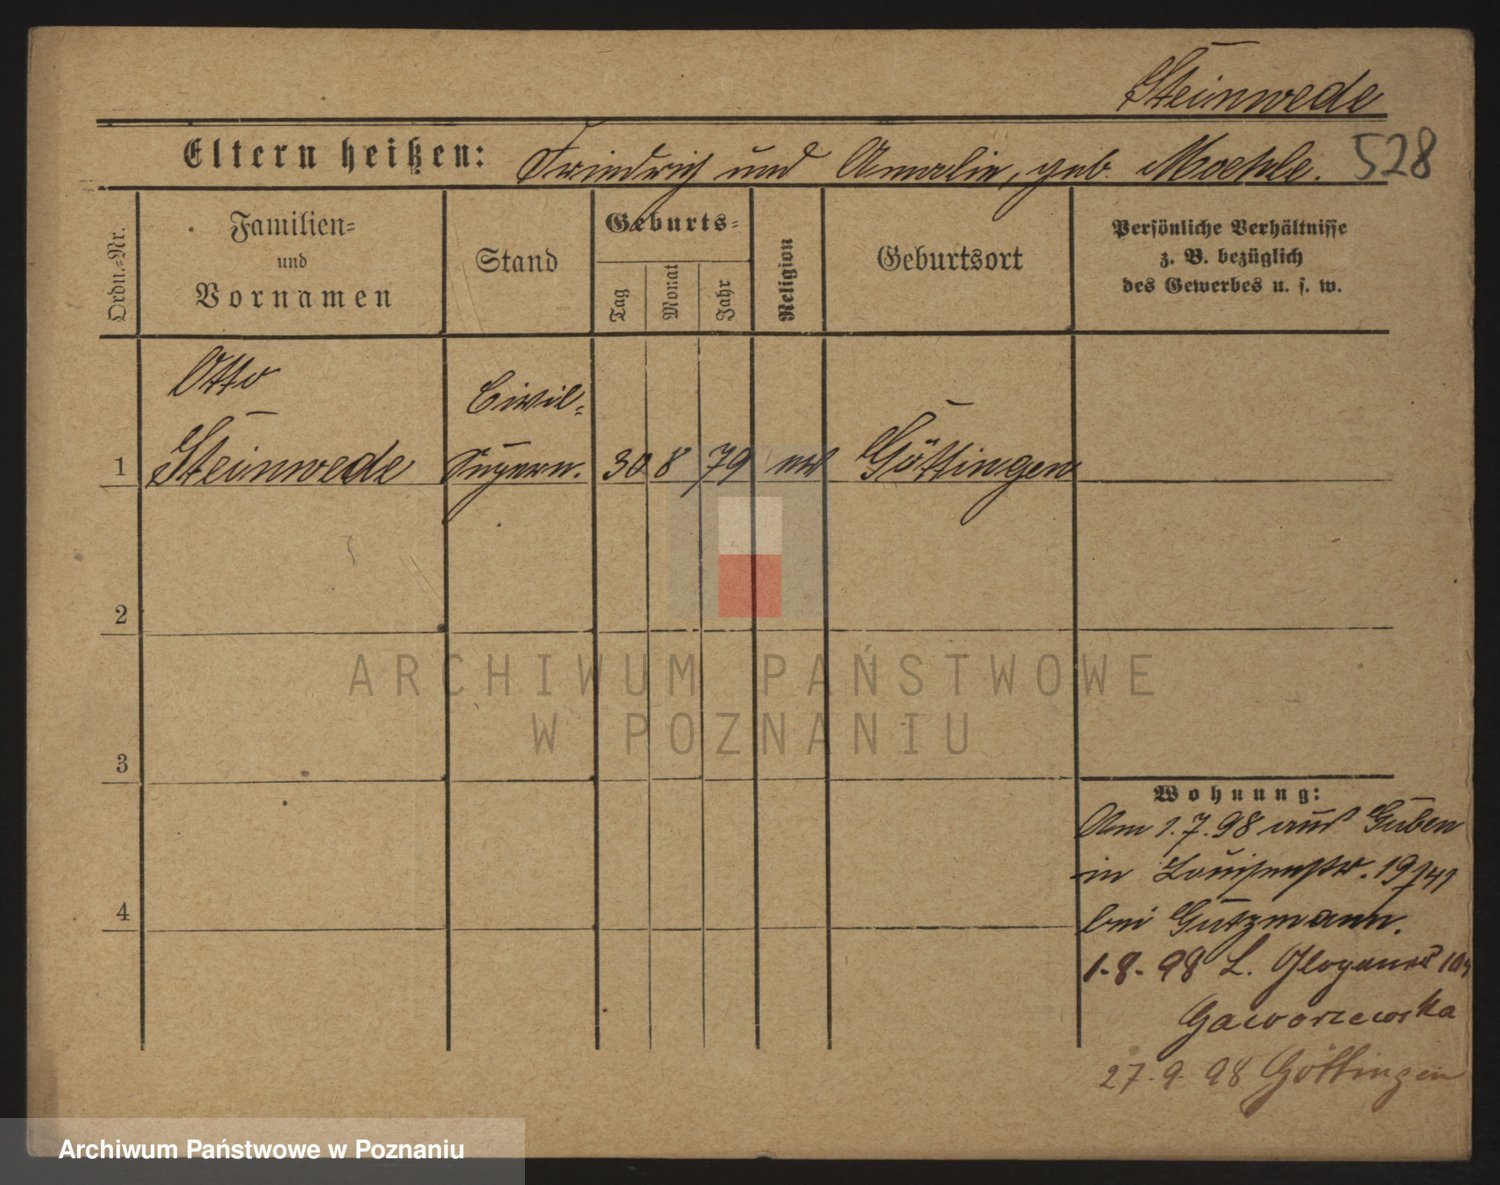 Steinwede
Eltern heißen: Friedrich und Amalie, geb. Moehle. 528
Ordn.-Nr.
Familien-
und
Vornamen
Stand
Geburts-
Tag
Monat
Jahr
Religion
Geburtsort
Persönliche Verhältnisse
z. B. bezüglich
des Gewerbes u. s. w.
Otto
Civil-
1 Steinwede Ingen. 30 8 79 Göttingen
2
ARCHIWUM PAŃSTWOWE
W POZNANIU
3
Wohnung:
Am 1.7.98 aus Guben
in Louisenstr. 19
4
bei Gutzmann.
1.8.98 L. 
Gaworzewska
27.9.98 Göttingen
Archiwum Państwowe w Poznaniu